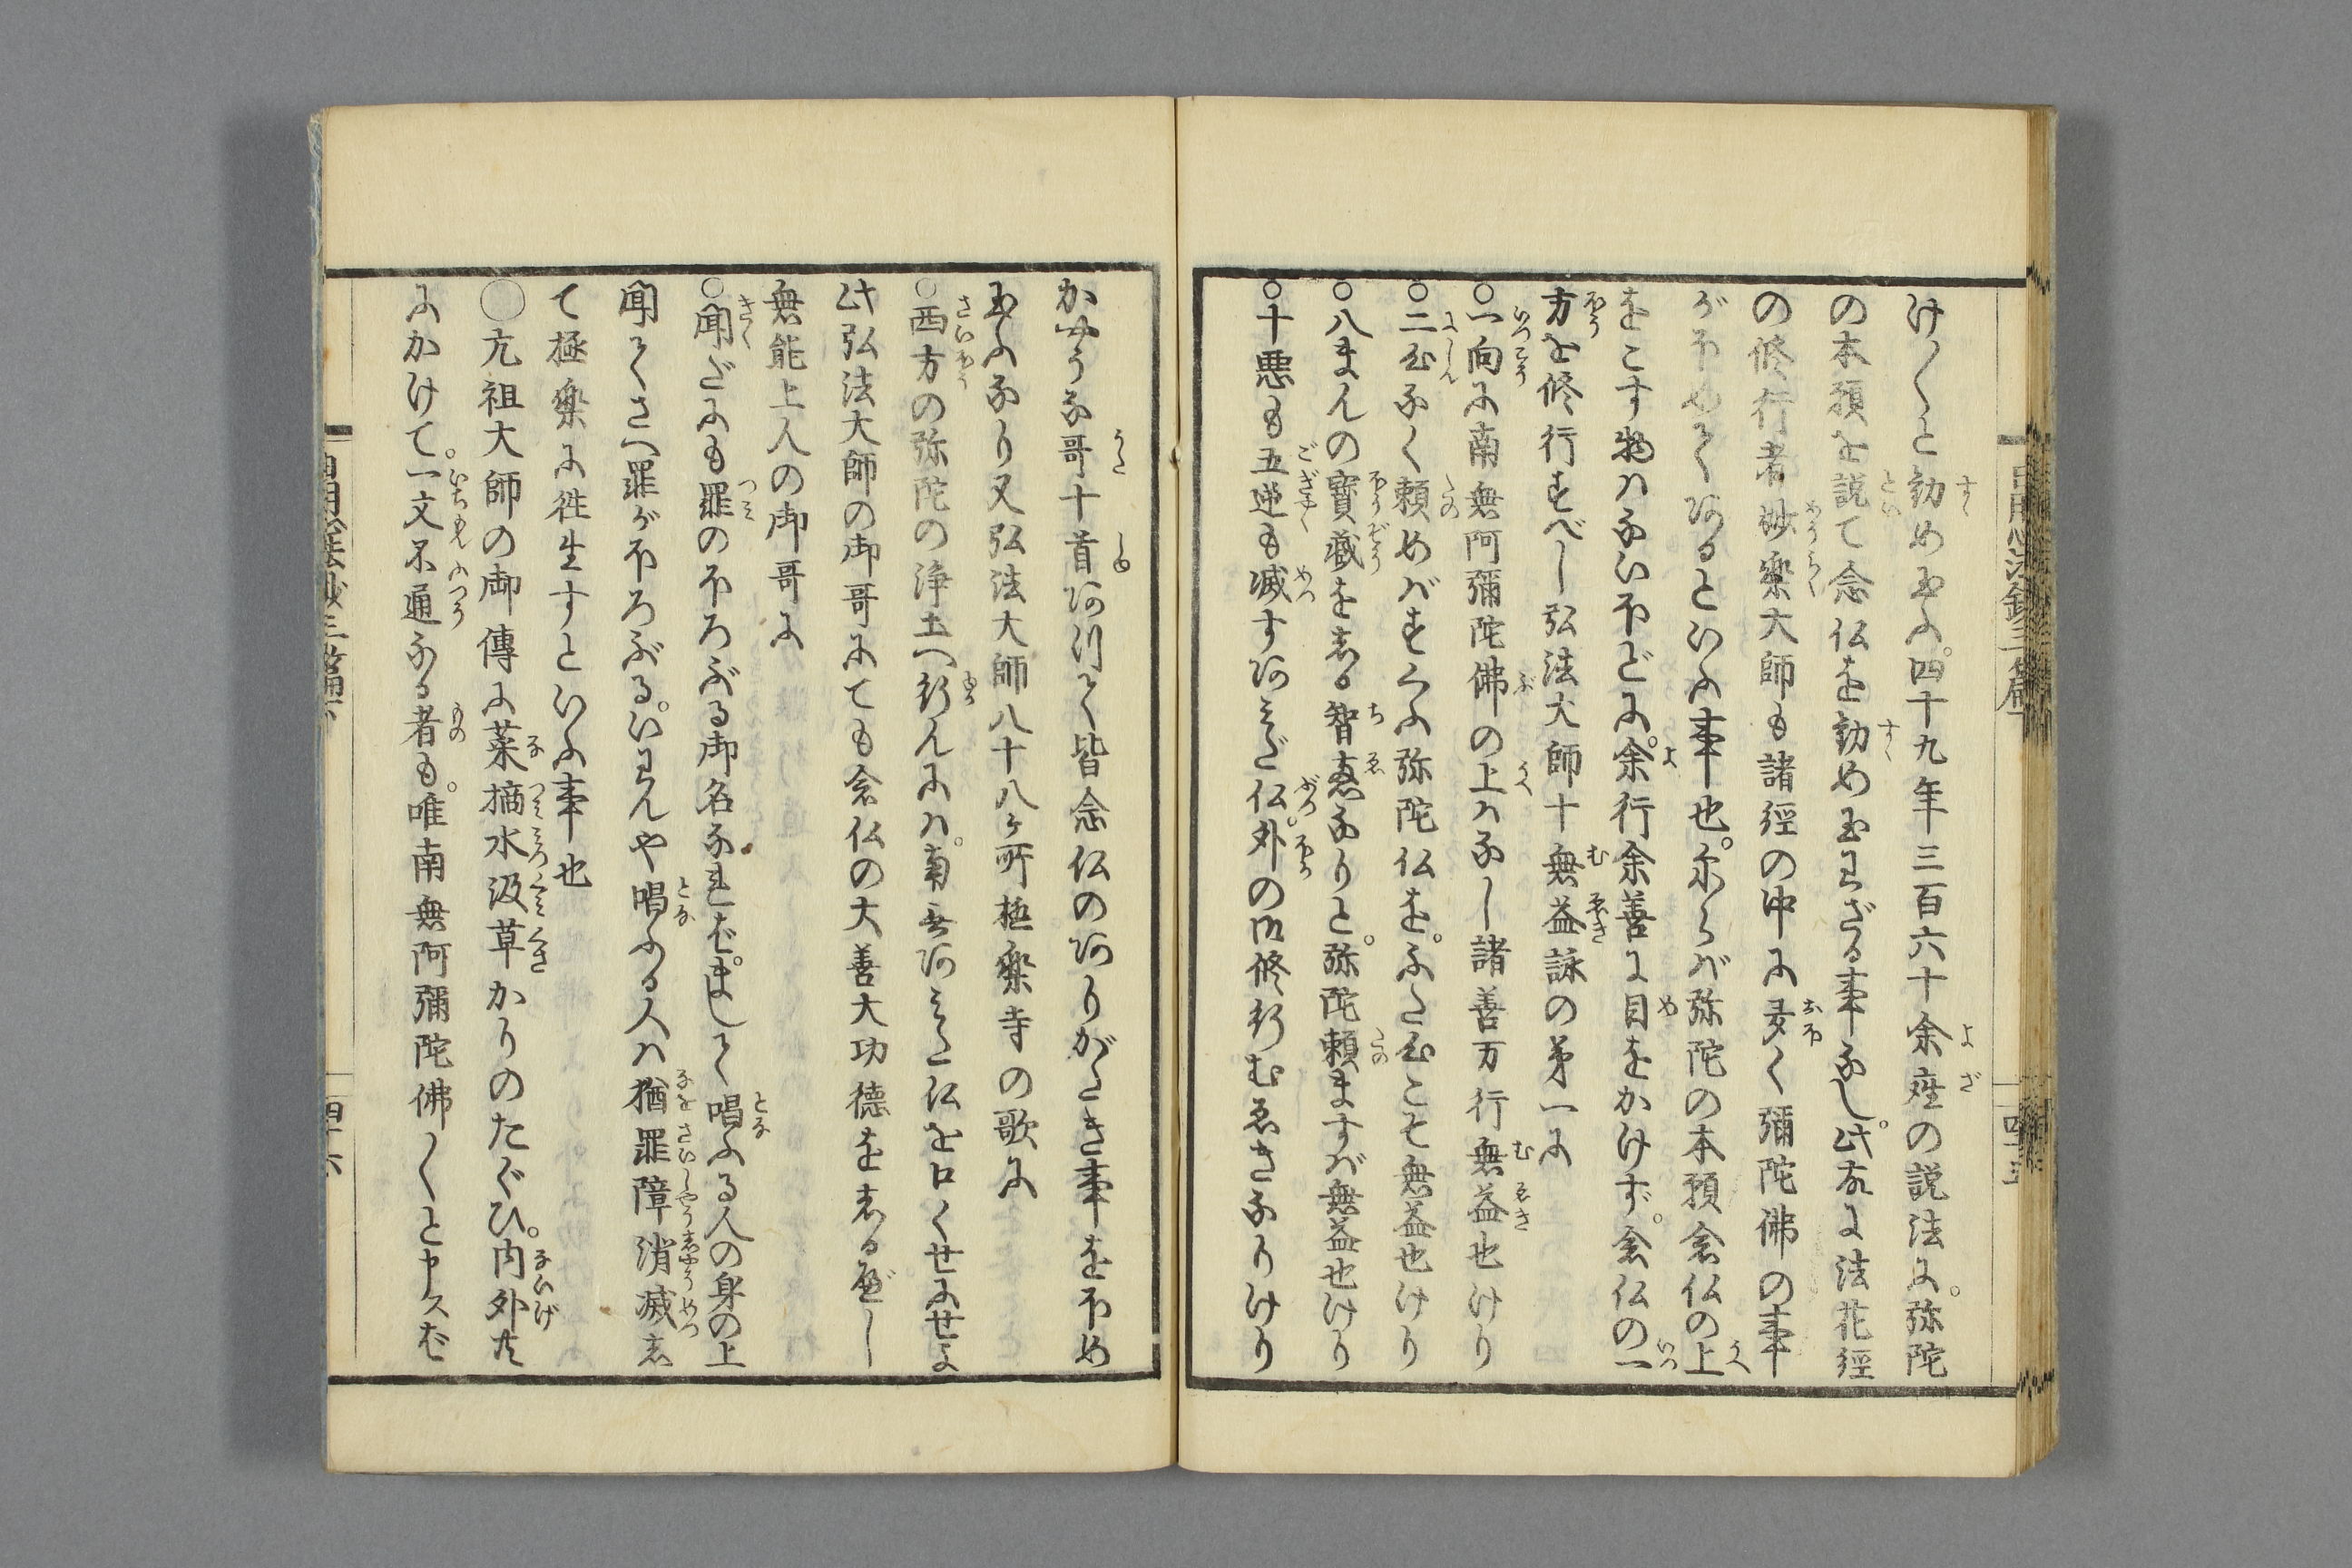 け〳〵と勧め玉ふ。四十九年三百六十余座の説法に。弥陀
の本願を説て念仏を勧め玉はざる事なし。此故に法花経
の修行者妙楽大師も諸経の中に多く彌陀佛の事
がほめてあるといふ事也。尓らば弥陀の本願念仏の上
をこす物はないほどに。余行余善に目をかけず。念仏の一
方を修行すべし弘法大師十無益詠の第一に
○一向に南無阿彌陀佛の上はなし諸善万行無益也けり
○二心なく頼めばすくふ弥陀仏を。ふた心こそ無益也けり
○八まんの寳蔵をしる智恵なりと。弥陀頼まずば無益也けり
○十悪も五逆も滅すあみだ仏。外の御修行むゑきなりけり
かやうな哥十首あつて皆念仏のありがたき事をほめ
玉ふなり又弘法大師八十八ヶ所極楽寺の歌に
○西方の弥陀の浄土へ行んには。南無あみだ仏を口くせにせよ
此弘法大師の御哥にても念仏の大善大功徳をしる べし
無能上人の御哥に
○聞だにも罪のほろぶる御名なれば。まして唱ふる人の身の上
聞てさへ罪がほろぶる。いはんや唱ふる人は猶罪障消滅し
て極楽に徃生すといふ事也
○元祖大師の御傳に菜摘水汲草かりのたぐひ。内外共
にかけて。一文不通なる者も。唯南無阿彌陀佛〳〵と申スば
四十六